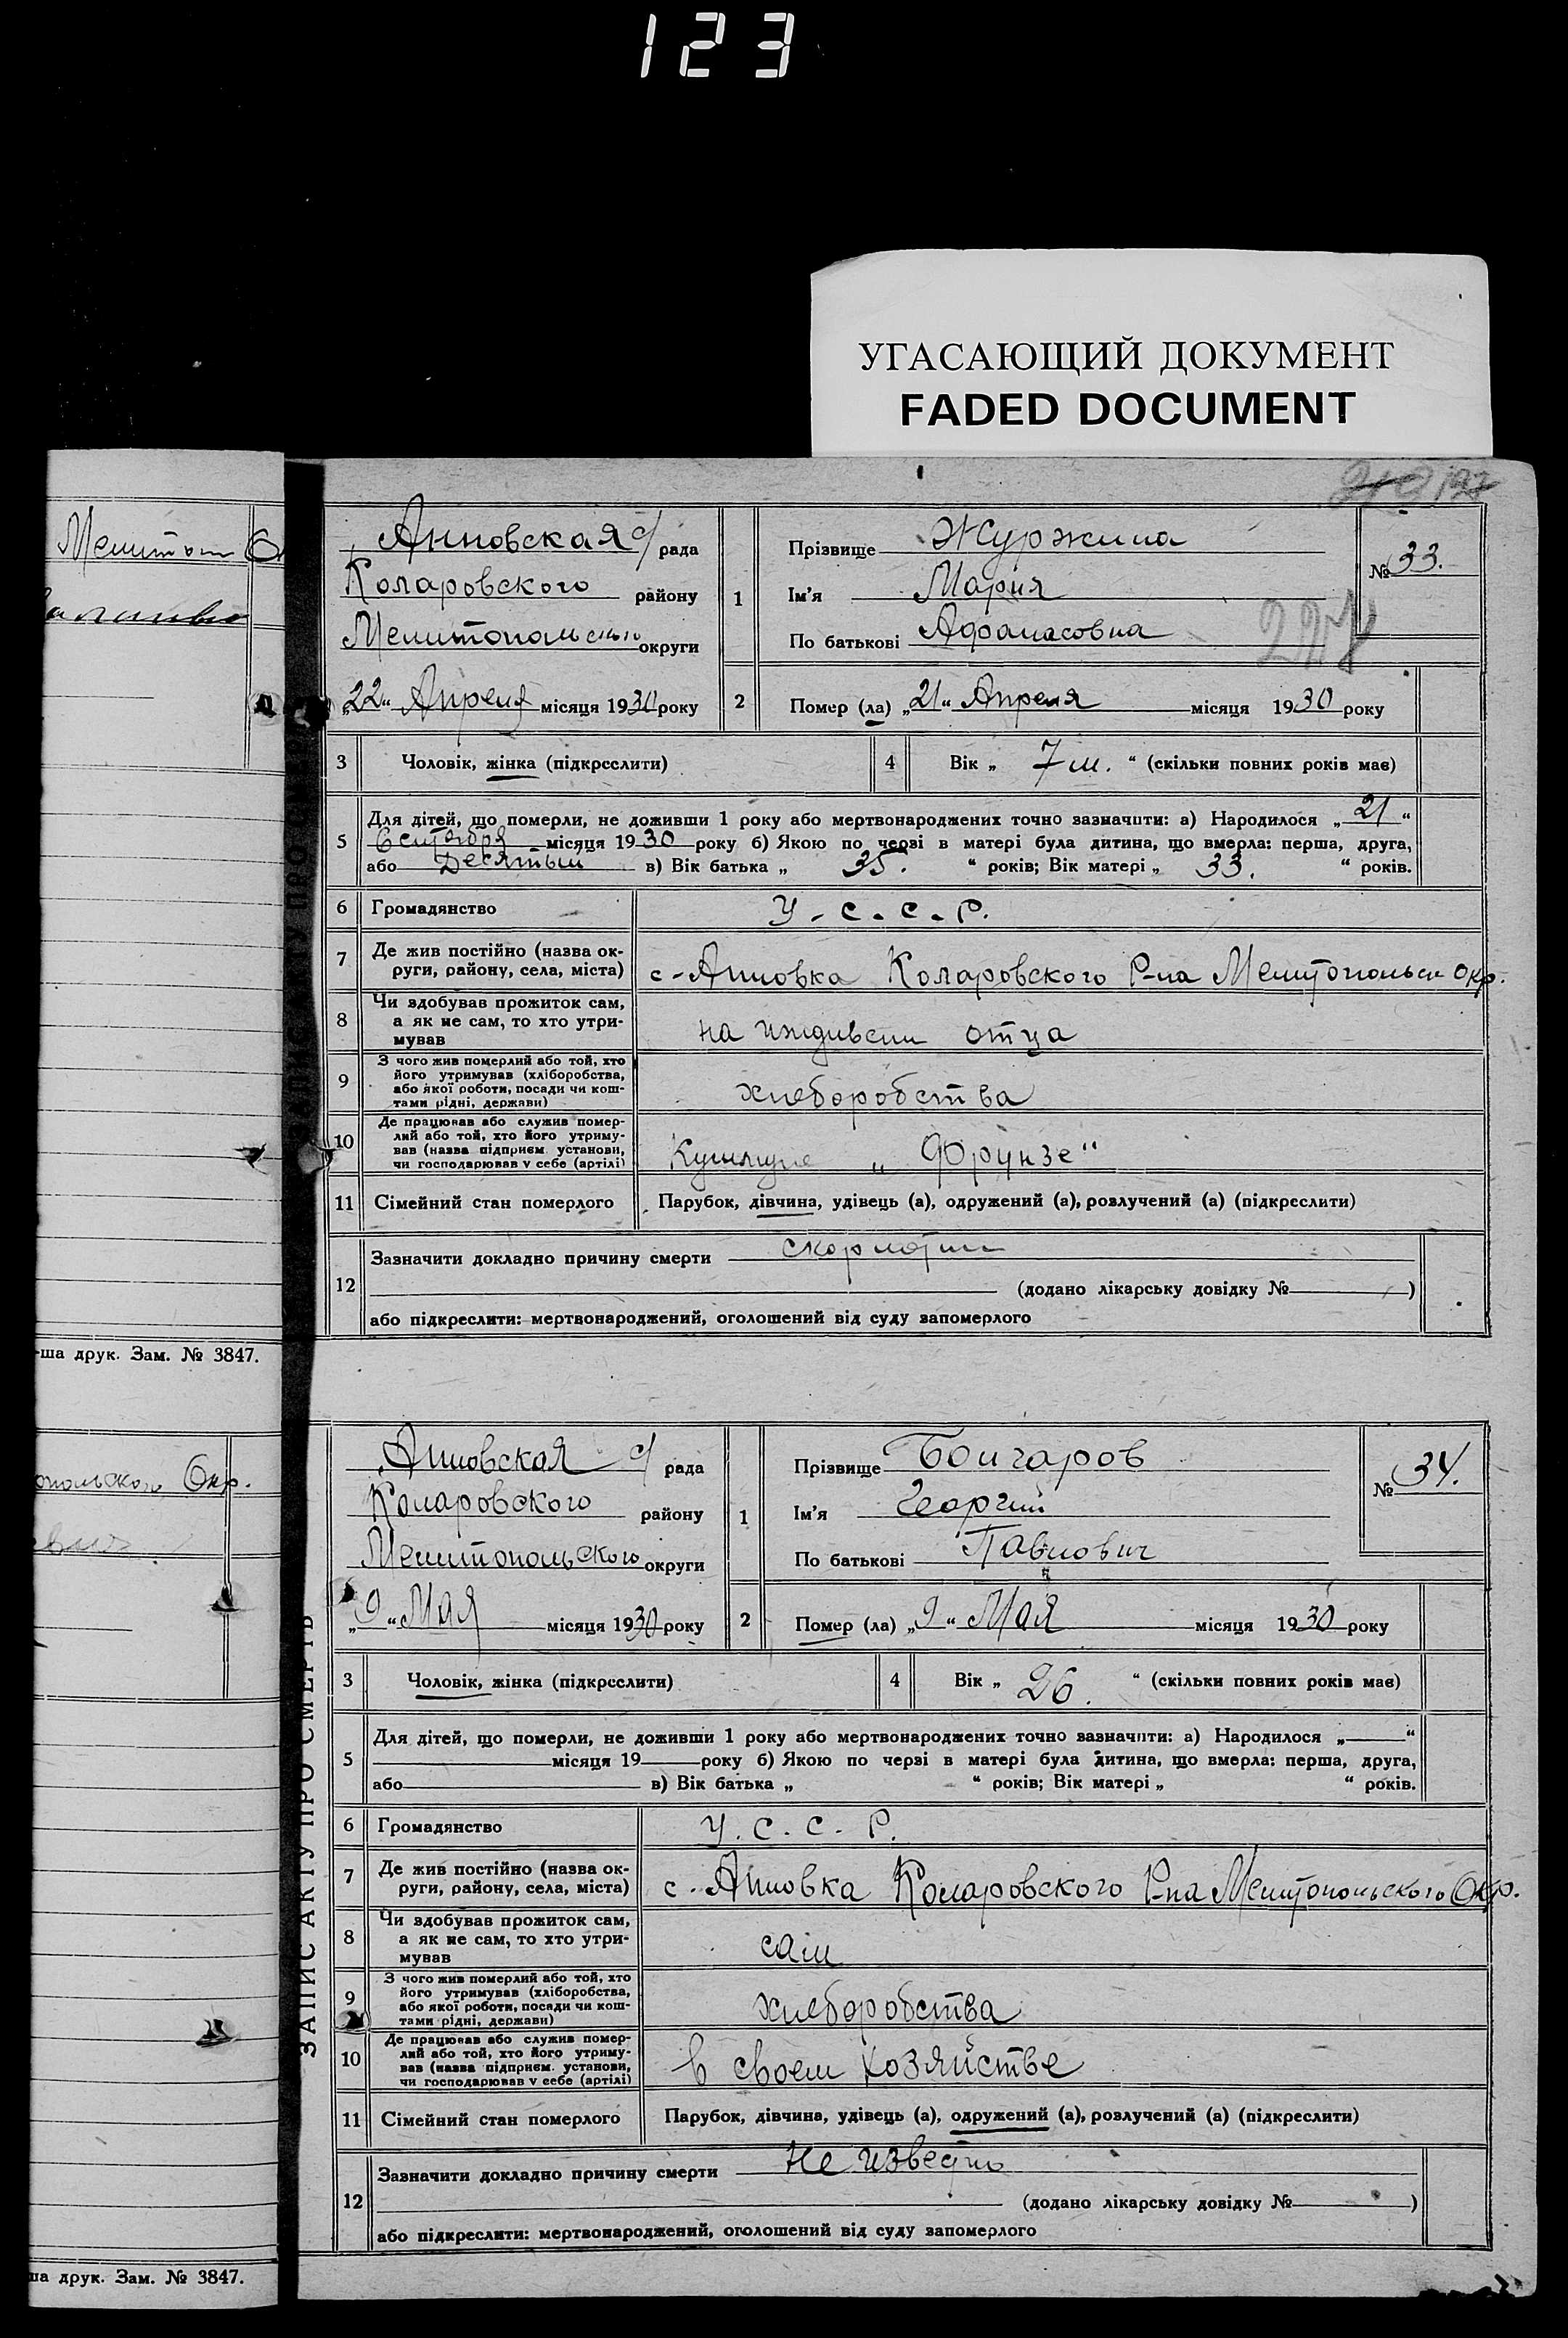 123
УГАСАЮЩИЙ ДОКУМЕНТ
FADED DOCUMENT
Анновская с/ рада
Коларовского району
Мелитопольского округи
„22“ Апреля місяця 1930 року
1 Прізвище Журжина
Ім'я Мария
По батькові Афонасовна
№ 33.
2 Помер (ла) „21“ Апреля місяця 1930 року
3 Чоловік, жінка (підкреслити)
4 Вік „ 7 м. “ (скільки повних років має)
5 Для дітей, що померли, не доживши 1 року або мертвонароджених точно зазначити: а) Народилося „21“
Сентября місяця 1930 року б) Якою по черзі в матері була дитина, що вмерла: перша, друга,
або Десятый в) Вік батька „ 35. “ років; Вік матері „ 33. “ років.
6 Громадянство У.С.С.Р.
7 Де жив постійно (назва округи, району, села, міста) с. Анновка Коларовского Р-на Мелитопольск Окр.
8 Чи здобував прожиток сам,
а як не сам, то хто утримував на иждивени отца
9 З чого жив померлий або той, хто
його утримував (хліборобства,
або якої роботи, посади чи коштами рідні, держави) хлеборобства
10 Де працював або служив померлий або той, хто його утримував (назва підприєм. установи,
чи господарював у себе (артілі) „Фрунзе“
11 Сімейний стан померлого Парубок, дівчина, удівець (а), одружений (а), розлучений (а) (підкреслити)
12 Зазначити докладно причину смерти
(додано лікарську довідку № )
або підкреслити: мертвонароджений, оголошений від суду запомерлого
-ша друк. Зам. № 3847.
ЗАПИС АКТУ ПРО СМЕРТЬ
Анновская с/ рада
Коларовского району
Мелитопольского округи
„9“ Мая місяця 1930 року
1 Прізвище Бойчаров
Ім'я Георгий
По батькові Павлович
№ 34.
2 Помер (ла) „9“ Мая місяця 1930 року
3 Чоловік, жінка (підкреслити)
4 Вік „ 26. “ (скільки повних років має)
5 Для дітей, що померли, не доживши 1 року або мертвонароджених точно зазначити: а) Народилося „ “
місяця 19 року б) Якою по черзі в матері була дитина, що вмерла: перша, друга,
або в) Вік батька „ “ років; Вік матері „ “ років.
6 Громадянство У.С.С.Р.
7 Де жив постійно (назва округи, району, села, міста) с. Анновка Коларовского Р-на Мелитопольского Окр.
8 Чи здобував прожиток сам,
а як не сам, то хто утримував сам
9 З чого жив померлий або той, хто
його утримував (хліборобства,
або якої роботи, посади чи коштами рідні, держави) хлеборобства
10 Де працював або служив померлий або той, хто його утримував (назва підприєм. установи,
чи господарював у себе (артілі) в своем хозяйстве
11 Сімейний стан померлого Парубок, дівчина, удівець (а), одружений (а), розлучений (а) (підкреслити)
12 Зазначити докладно причину смерти не известно
(додано лікарську довідку № )
або підкреслити: мертвонароджений, оголошений від суду запомерлого
ша друк. Зам. № 3847.